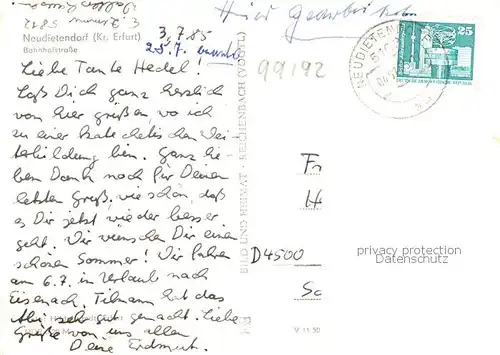 Hier
Neudietendorf (Kr. Erfurt)
Bahnhofstraße
3.7.85
25.7.
99192
Liebe Tante Hedel!
Laß Dich ganz herzlich
von hier grüßen, wo ich
zu einer katechetischen Wei-
terbildung bin. Ganz lie-
ben Dank noch für Deinen
letzten Gruß, wie schön, daß
es Dir jetzt wieder besser
geht. Wir wünschen Dir einen
schönen Sommer! Wir fahren
am 6.7. in Urlaub nach
Eisenach. Tilmann hat das
Abi sehr gut gemacht. Liebe
Grüße von uns allen
Deine Erdmut.
BILD UND HEIMAT · REICHENBACH (VOGTL)
NEUDIETENDORF
25
DEUTSCHE DEMOKRATISCHE REPUBLIK
Fr
H
D4500
Sc
privacy protection
Datenschutz
V 11 50